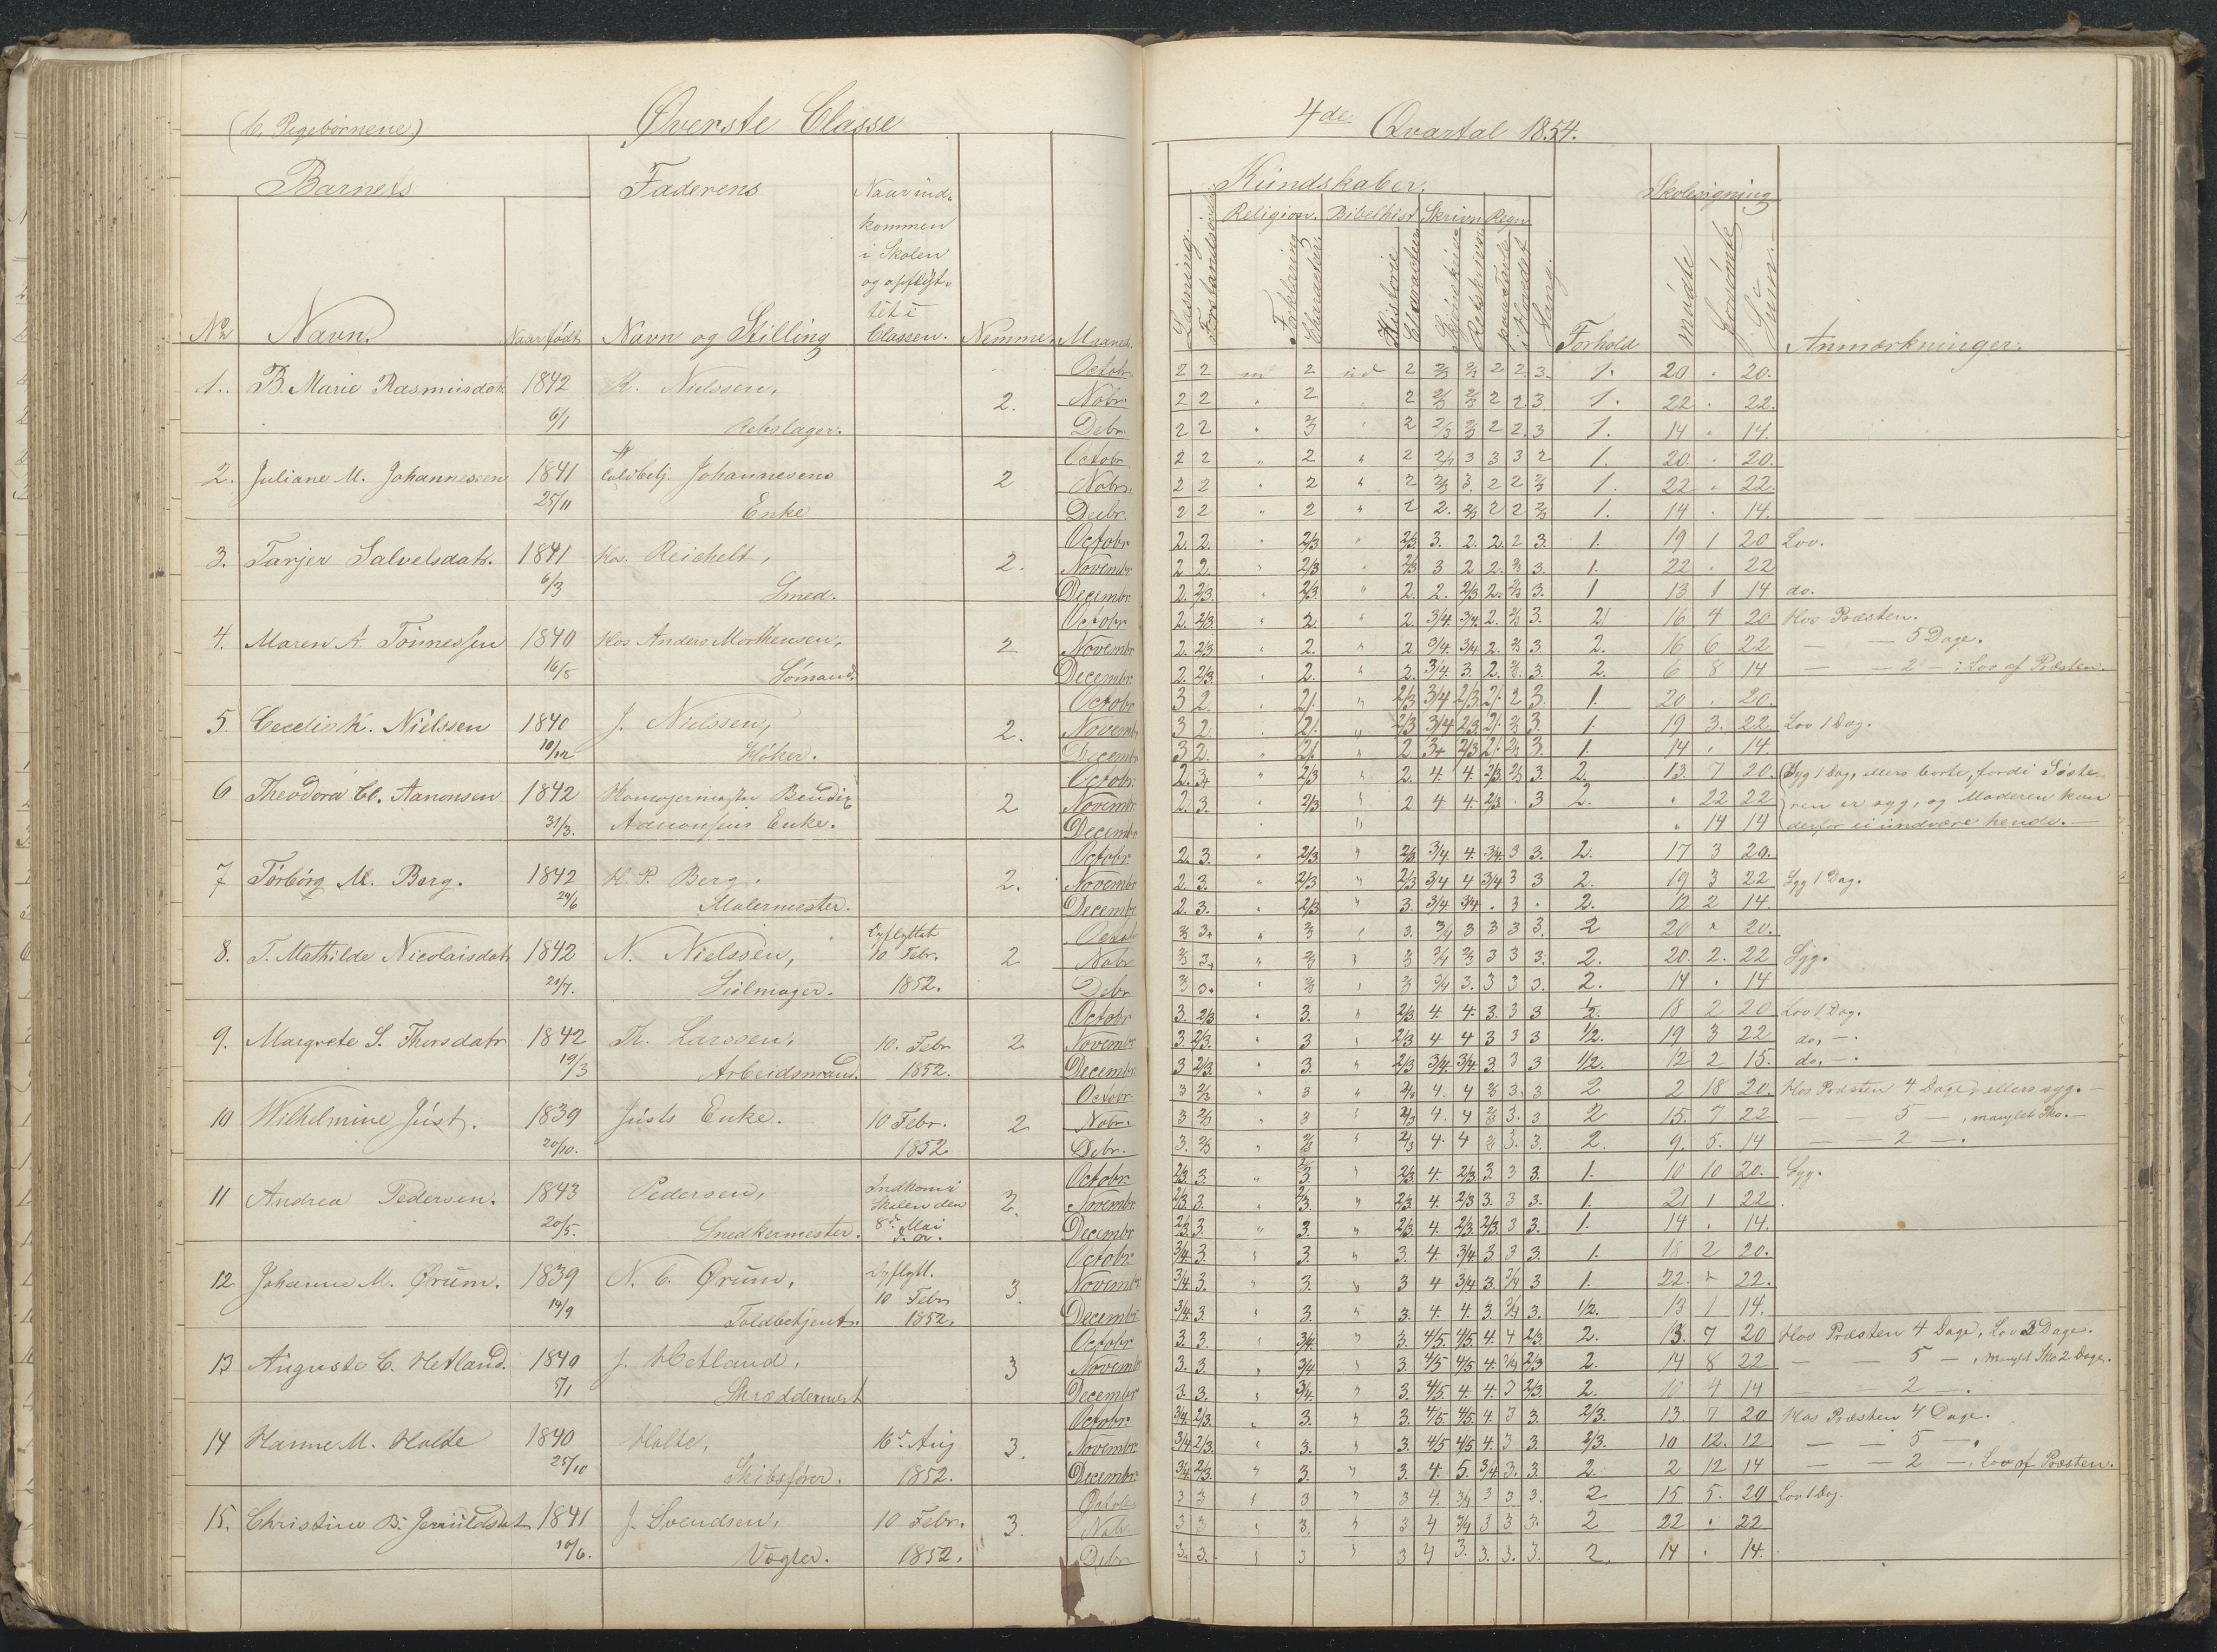 (b. Pigebørnene) Øverste Classe
4de Qvartal 1854.
Barnets Faderens Naar ind-
kommen
i Skolen
og opflyt-
tet i
Classen.
No Navn. Naar født Navn og Stilling Nemme. Maaned.
Kundskaber. Skolesøgning
Religion. Bibelhist. Skrivn. Regn.
Læsning. Forstandsøvelse Forklaring Character. Historie Character Retskrivn. Sang. Forhold mødte forsømte Sum. Anmærkninger.
1. B. Marie Rasmusdatr 1842 R. Nielssen, Octobr. 2 2 2 2 2/3 2/3 2 2. 3. 1. 20 " 20.
2. Nobr. 2 2 " 2 " 2 2/3 2/3 2 2. 3 1. 22 " 22.
6/1 Rebslager. Debr. 2 2 " 2/3 " 2 2/3 2/3 2 2. 3 1. 14 " 14.
2. Juliane M. Johannessen 1841 Toldbetj. Johannesens 2 Octobr 2 2 " 2 " 2 2/3 3 3 3 2 1. 20. " 20.
Nobr. 2 2 " 2 " 2 2/3 3. 2 2 2/3 1. 22 " 22.
25/11 Enke Decbr. 2 2 " 2 " 2 2. 2/3 2 2 2/3 1. 14 " 14.
3. Tarjer Salvelsdatr. 1841 Hos. Reichelt, 2. Octobr. 2. 2. " 2/3 " 2/3 3. 2. 2. 2 3. 1. 19 1 20 Lov.
Novembr 2 2. " 2/3 " 2/3 3 2 2. 2/3 3. 1. 22 " 22
6/3 Smed. Decembr. 2. 2/3. " 2/3 " 2. 2. 2/3 2. 2/3 3. 1 13 1 14 do.
4. Maren A. Tönnessen 1840 Hos Anders Morthensen, 2 Octobr 2. 2/3. " 2 " 2. 3/4 3/4. 2. 2/3 3. 2 16 4 20 Hos Præsten.
Novembr 2. 2/3 " 2. " 2 3/4. 3/4 2. 2/3 3. 2. 16 6 22 — — 5 Dage.
16/5 Sömand. Decembr. 2. 2/3. " 2. " 2. 3/4. 3. 2. 2/3. 3. 2. 6 8 14 — — 2 — ; Lov af Præsten.
5. Cecelie K. Nielssen 1840 J. Nielssen, 2. Octobr 3 2. " 2. " 2/3 3/4 2/3. 2. 2 3. 1. 20 " 20.
Novembr 3 2. " 2. " 2/3 3/4 2/3. 2. 2/3 3. 1. 19 3. 22 Lov 1 Dag.
10/12 Höker. Decembr 3 2. " 2. " 2 3/4 2/3 2. 2/3 3. 1. 14 " 14.
6 Theodora Cl. Aanonsen 1842 Bendix 2 Octobr. 2. 3. " 2/3 " 2. 4. 4. 2/3. 2/3 3. 2. 13. 7 20. Syg 1 Dag, ellers borte, fordi Söste-
Novembr 2. 3. " 2/3 " 2 4 4. 2/3. " 3 2. " 22 22 ren er syg, og Moderen kan
31/3. Aanonsens Enke. Decembr " 14 14 derfor ei undvære hende. —
7 Torborg M. Berg. 1842 H. P. Berg. 2. Octobr 2. 3. " 2/3 " 2/3 3/4. 4. 3/4. 3 3. 2. 17 3 20.
Novembr 2. 3. " 2/3 " 2/3 3/4 4 3/4 3 3 2. 19 3 22 Syg 1 Dag.
24/6 Malermester. Decembr. 2. 3. " 2/3 " 3. 3/4 3/4. " 3 " 2. 12 2 14.
8. T. Mathilde Nicolaisdatr 1842 N. Nielssen, Opflyttet 2 Octobr 3. " " 3. 3/4 3 3 3 3. 2 20 " 20.
10 Febr. Nobr 3. " " 3 3/4 3 3 3. 2. 20. 2. 22 Syg.
21/7. Seilmager. 1852. Debr 3. " " 3 3/4 3. 3 3 3. 2. 14 " 14
9. Margrete S. Thorsdatr 1842 Th. Larssen, 10. Febr 2 Octobr 3. 2/3 " 3. " 2/3 4. 4. 3. 3 3 1/2. 18 2 20 Lov 1 Dag.
Novembr 3. 2/3. " 3 " 2/3 4 4 3 3 3 1/2. 19 3 22 do, — .
19/3 Arbeidsmand. 1852. Decembr 3 2/3. " 3. " 2/3 3/4. 3/4. 3 3 3 1/2. 12 2 15. do, — .
10 Wilhelmine Just. 1839 Justs Enke. 10 Febr. 2 Octobr 3 2/3 " 3 " 2/3 4. 4 2/3 3. 3 2 2 18 20. Hos Præsten 4 Dage, ellers syg. —
Nobr. 3 2/3 " 3 " 2/3 4. 4 2/3 3. 3 2 15. 7 22 — — 5 — , manglet Sko. —
20/10. 1852 Debr. 3. 2/3 " 2/3 " 2/3 4. 4 2/3 3. 3. 2. 9. 5. 14 — — 2 — .
11 Andrea Pedersen. 1843 Pedersen, Indkom i 2. Octobr 2/3. 3. " 2/3. " 2/3. 4. 2/3. 3 3 3. 1. 10 10 20. Syg.
Skolen den Novembr 2/3 3. " 2/3. " 2/3. 4. 2/3 3. 3 3. 1. 21 1 22
20/5. Snedkermester. 8de Mai d. a. Decembr 2/3 3. " 3. " 2/3. 4. 2/3. 2/3. 3 3. 1. 14 " 14.
12 Johanne M. Ørum. 1839 N. C. Ørum, Opflytt. 3. Octobr. 3/4. 3. " 3. " 3. 4. 3/4. 3. 3 3. 1. 18 2 20.
10 Febr Novembr 3/4. 3. " 3. " 3 4 3/4 3. 3/4 3 1. 22. " 22.
14/9 Toldbetjent. 1852. Decembr 3/4. 3 " 3. " 3. 4. 4. 3. 3/4 3. 1/2. 13 1 14.
13 Auguste C. Hetland. 1840 J. Hetland, 3 Octobr 3. 3. " 3/4. " 3. 4/5. 4/5. 4. 4 2/3. 2. 13. 7 20 Hos Præsten 4 Dage, Lov 3 Dage.
Novembr 3. 3. " 3/4 " 3 4/5 4/5 4. 3/4 2/3 2. 14 8 22 — — 5 — , manglet Sko 2 Dage.
5/1 Skræddermest Decembr 3. 3. " 3/4. " 3. 4/5 4. 4. 3 2/3. 2. 10 4 14 — 2 — .
14 Hanne M. Holte 1840 Holte, 16de Aug 3. Octobr. 3/4. 2/3. " 3. " 3. 4/5. 4/5. 4. 3 3. 2/3. 13. 7 20 Hos Præsten 4 Dage.
Novembr 3/4 2/3. " 3. " 3. 4/5 4/5 4. 3 3. 2/3. 10 12. 12 — — 5 — .
25/10 Skibsfører. 1852. Decembr. 3/4. 2/3. " 3. " 3. 4. 5. 3/4. 3. 3. 2. 2 12 14 — — 2 — , Lov af Præsten.
15. Christine B. 1841 J. Svendsen, 10 Febr. 3. Octobr 3 3 " 3 " 3 4. 3/4 3 3 3. 2 15 5. 20 Lov 1 Dag.
Nobr 3 3 " 3. " 3 4 3/4 3 3 3. 2 22 " 22
10/6. Vægter. 1852. Debr 3. 3. " 3 " 3 4 3. 3. 3. 3. 2. 14 " 14.